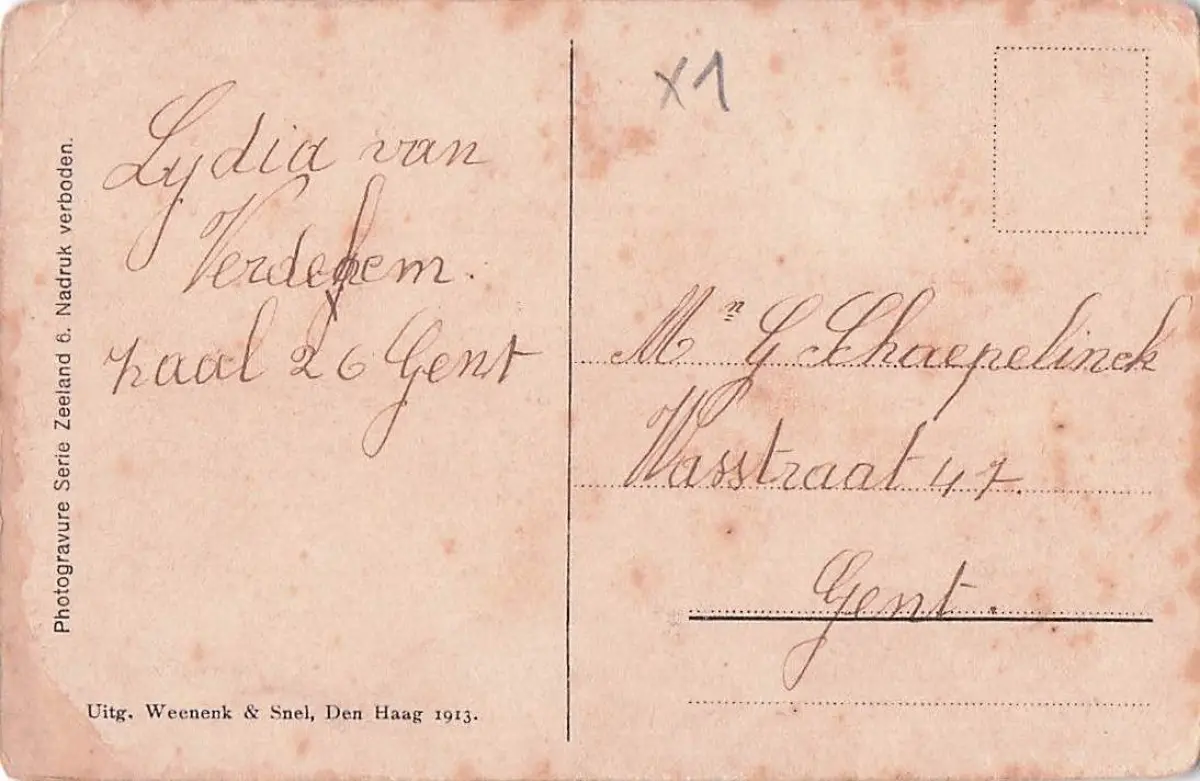 x1
Lydia van
Verdeghem.
zaal 26 Gent
Mr G Schaepelinck
Wasstraat 47.
Gent.
Photogravure Serie Zeeland 6. Nadruk verboden.
Uitg. Weenenk & Snel, Den Haag 1913.